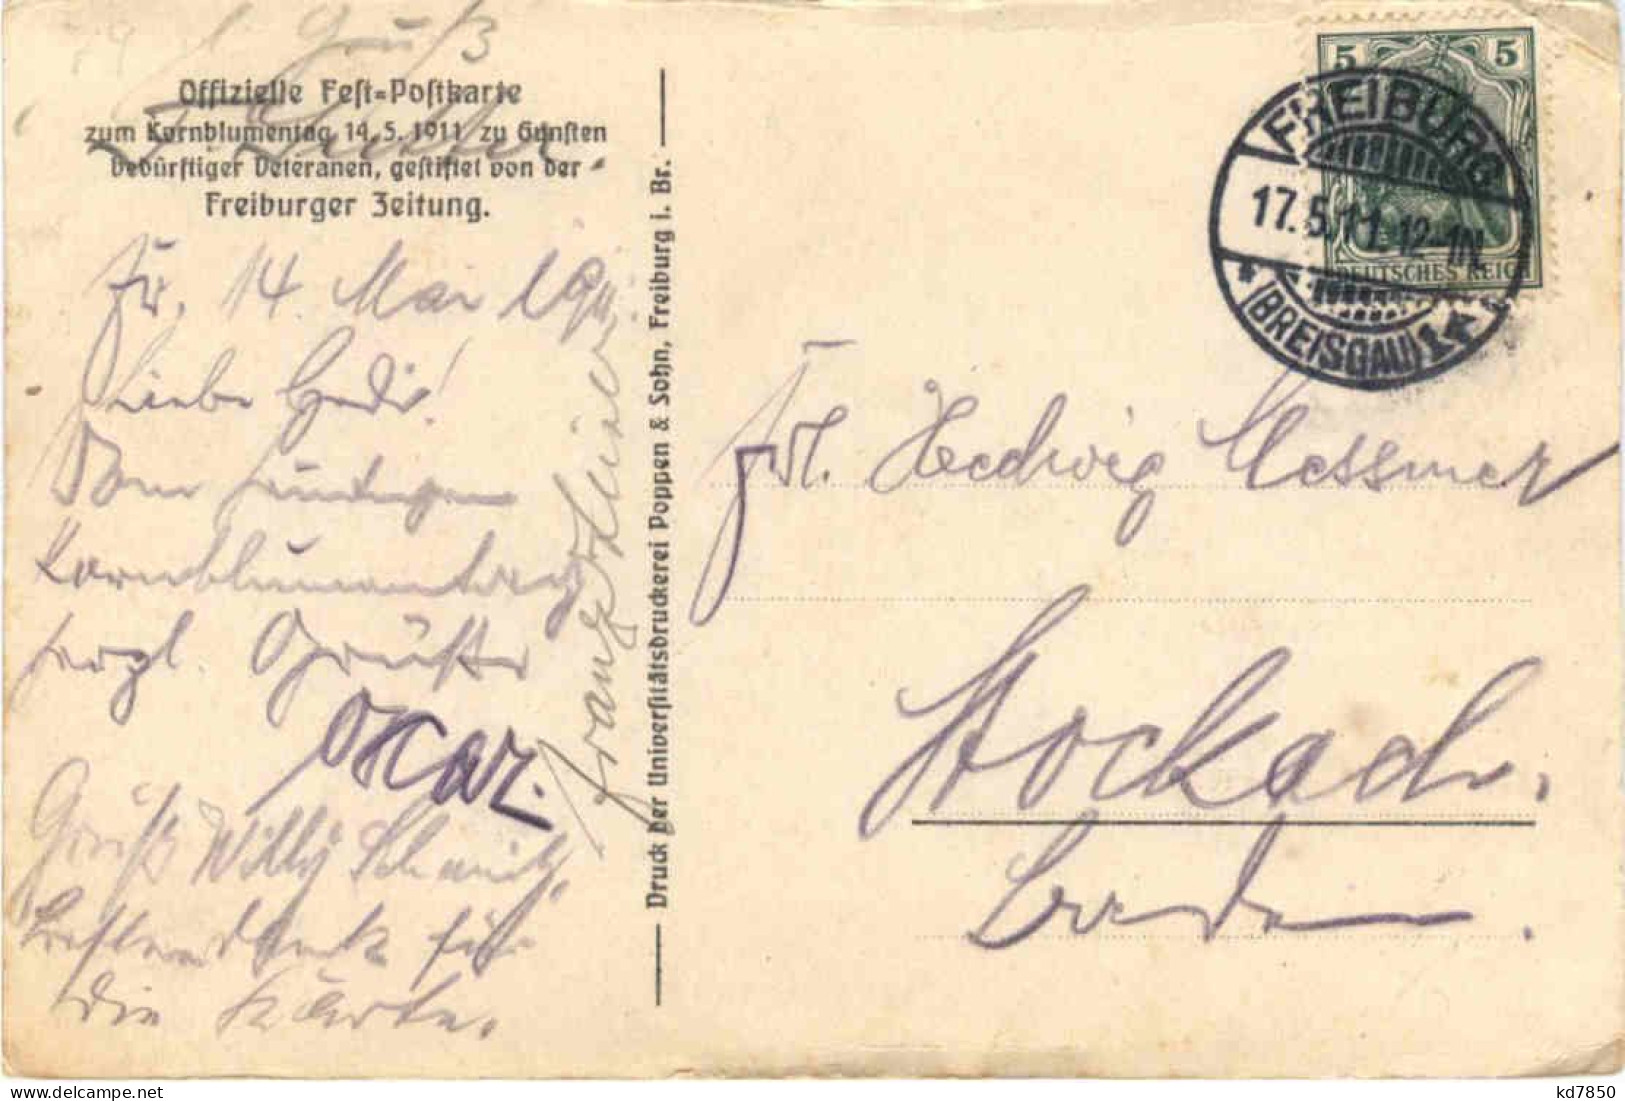 Gruß
Offizielle Fest=Postkarte
zum Kornblumentag 14.5.1911 zu Gunsten
bedürftiger Veteranen, gestiftet von der
Freiburger Zeitung.
Fr. 14 Mai 1911.
Liebe Hedi!
Vom heutigen
Kornblumentag
herzl. Grüße
Oscar.
Gruß Willy Schmitz
Besten Dank für
die Karte.
Franz
Druck der Universitätsdruckerei Poppen & Sohn, Freiburg i. Br.
5 5
DEUTSCHES REICH
FREIBURG
17.5.11.12-1N.
* (BREISGAU) 1 K *
Frl. Hedwig Messmer
Stockach.
Baden.
kd7850